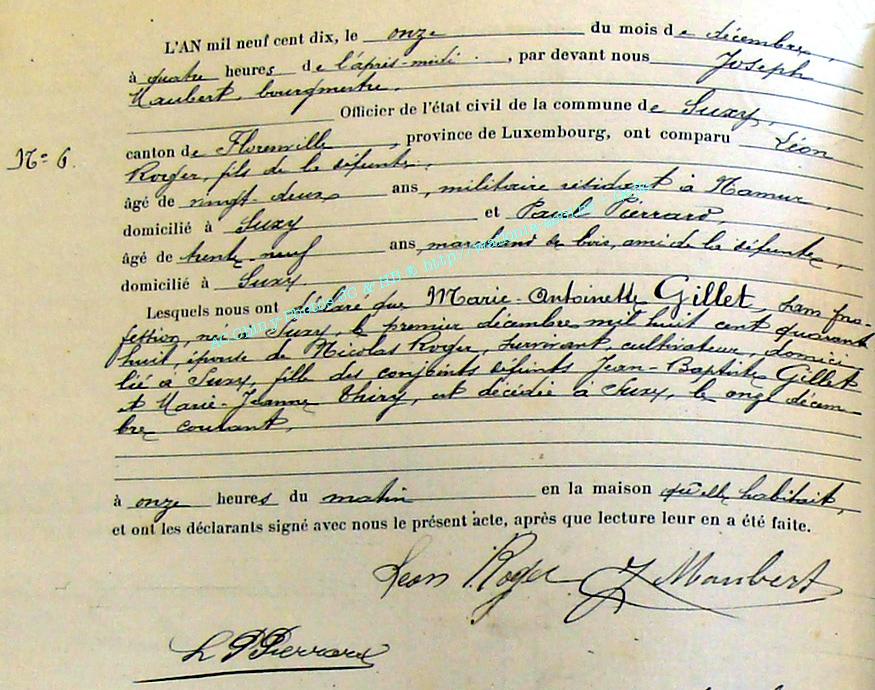 L'AN mil neuf cent dix, le onze du mois de décembre,
à quatre heures de l'après-midi, par devant nous Joseph
Maubert, bourgmestre,
Officier de l'état civil de la commune de Suxy,
canton de Florenville, province de Luxembourg, ont comparu Léon
N° 6.
Roger, fils de la défunte,
âgé de vingt-deux ans, militaire résidant à Namur,
domicilié à Suxy et Paul Pierrard,
âgé de trente-neuf ans, marchand de bois, ami de la défunte,
domicilié à Suxy.
Lesquels nous ont déclaré que Marie-Antoinette Gillet, sans pro-
fession, née à Suxy, le premier décembre mil huit cent quarante
huit, épouse de Nicolas Roger, survivant cultivateur, domici
lié à Suxy, fille des conjoints défunts Jean-Baptiste Gillet
et Marie-Jeanne Thiry, est décédée à Suxy, le onze décem-
bre courant,
à onze heures du matin en la maison qu'elle habitait,
et ont les déclarants signé avec nous le présent acte, après que lecture leur en a été faite.
Léon Roger J Maubert
L P Pierrard